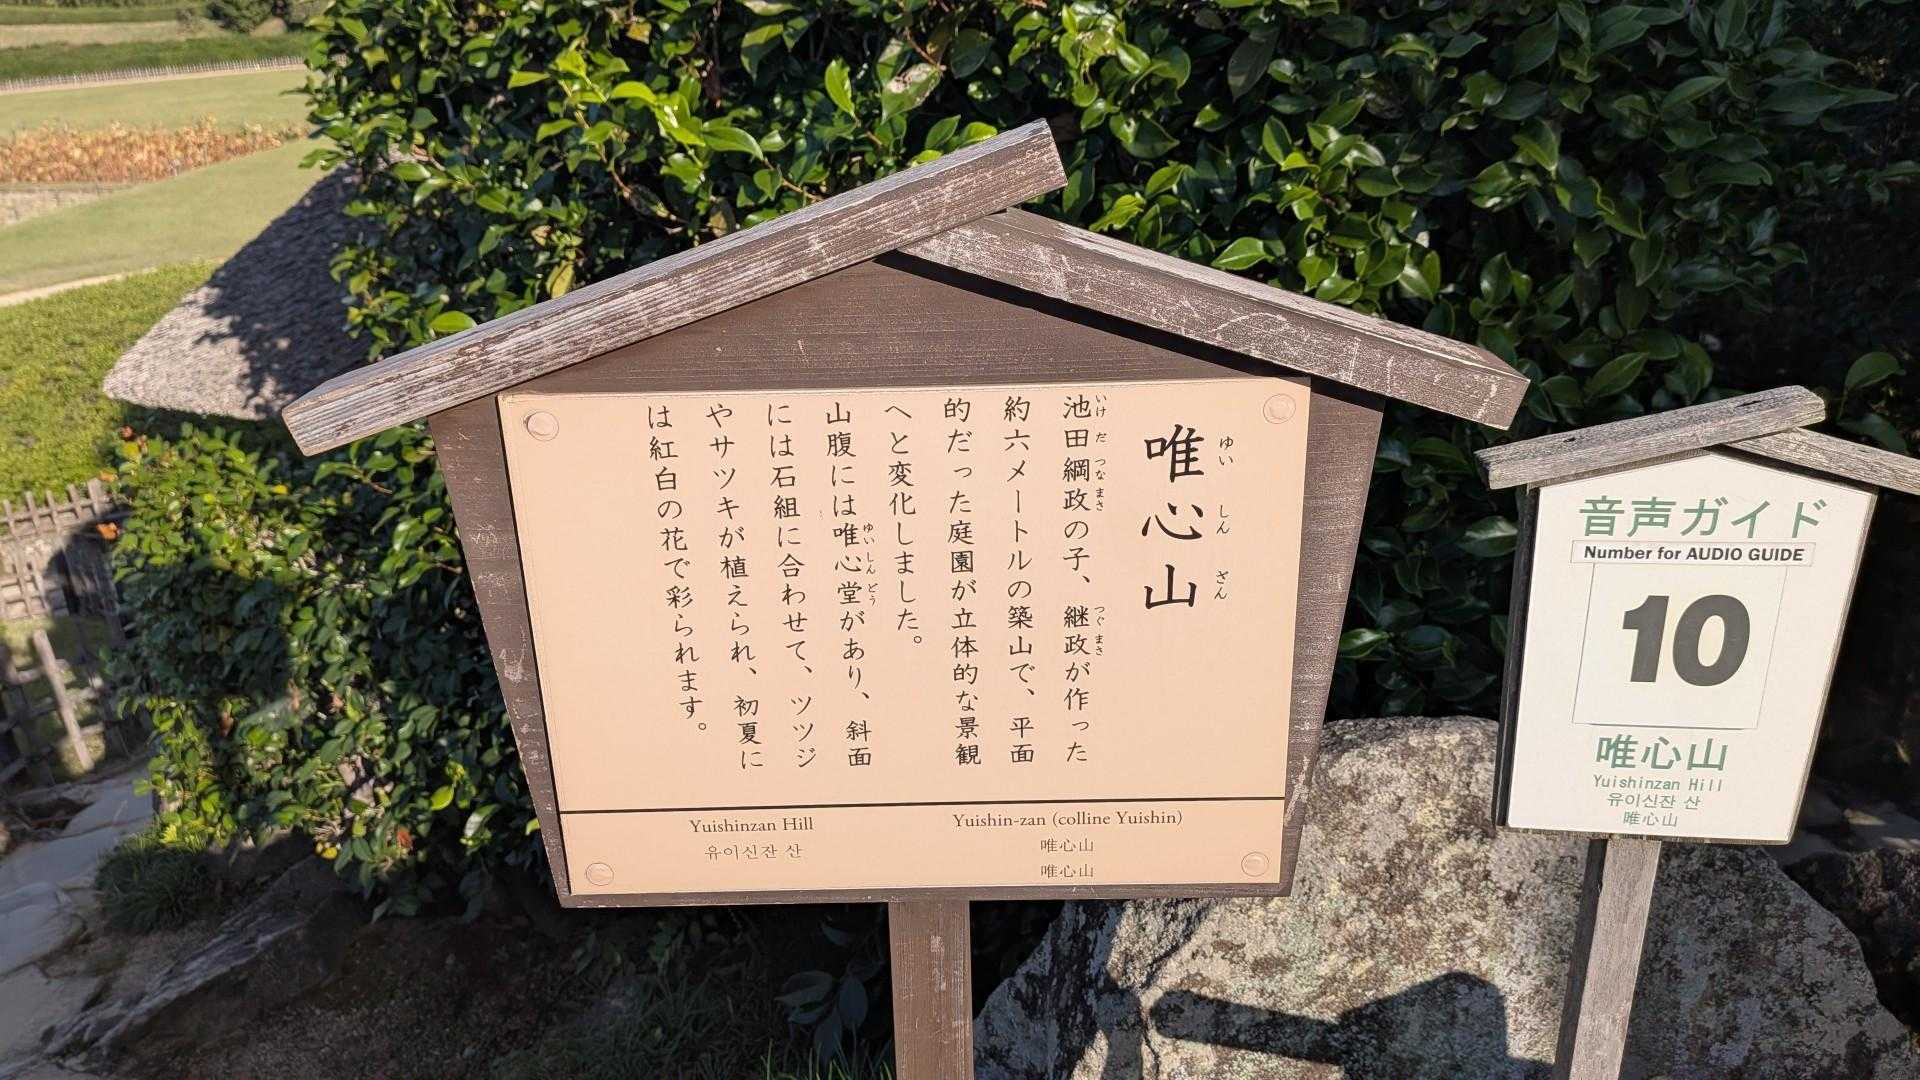 唯心山
ゆいしんざん
池田綱政の子、継政が作った
いけだつなまさ つぐまさ
約六メートルの築山で、平面
的だった庭園が立体的な景観
へと変化しました。
山腹には唯心堂があり、斜面
ゆいしんどう
には石組に合わせて、ツツジ
やサツキが植えられ、初夏に
は紅白の花で彩られます。
Yuishinzan Hill
유이신잔 산
Yuishin-zan (colline Yuishin)
唯心山
唯心山
音声ガイド
Number for AUDIO GUIDE
10
唯心山
Yuishinzan Hill
유이신잔 산
唯心山